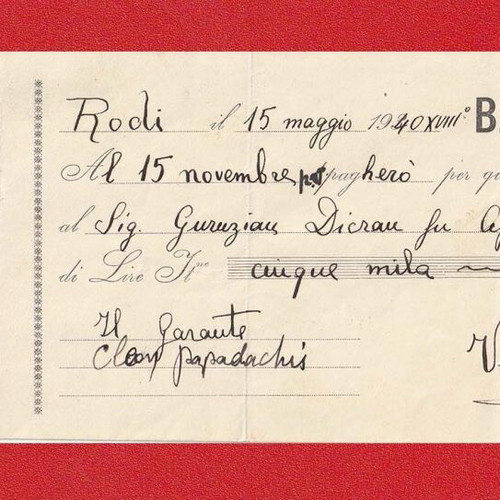 Rodi il 15 maggio 1940 XVIII° B
Al 15 novembre p.º pagherò per qu
al Sig. Guruzian Dicran fu
di Lire It.ne cinque mila
Il Garante
Papadachis
V